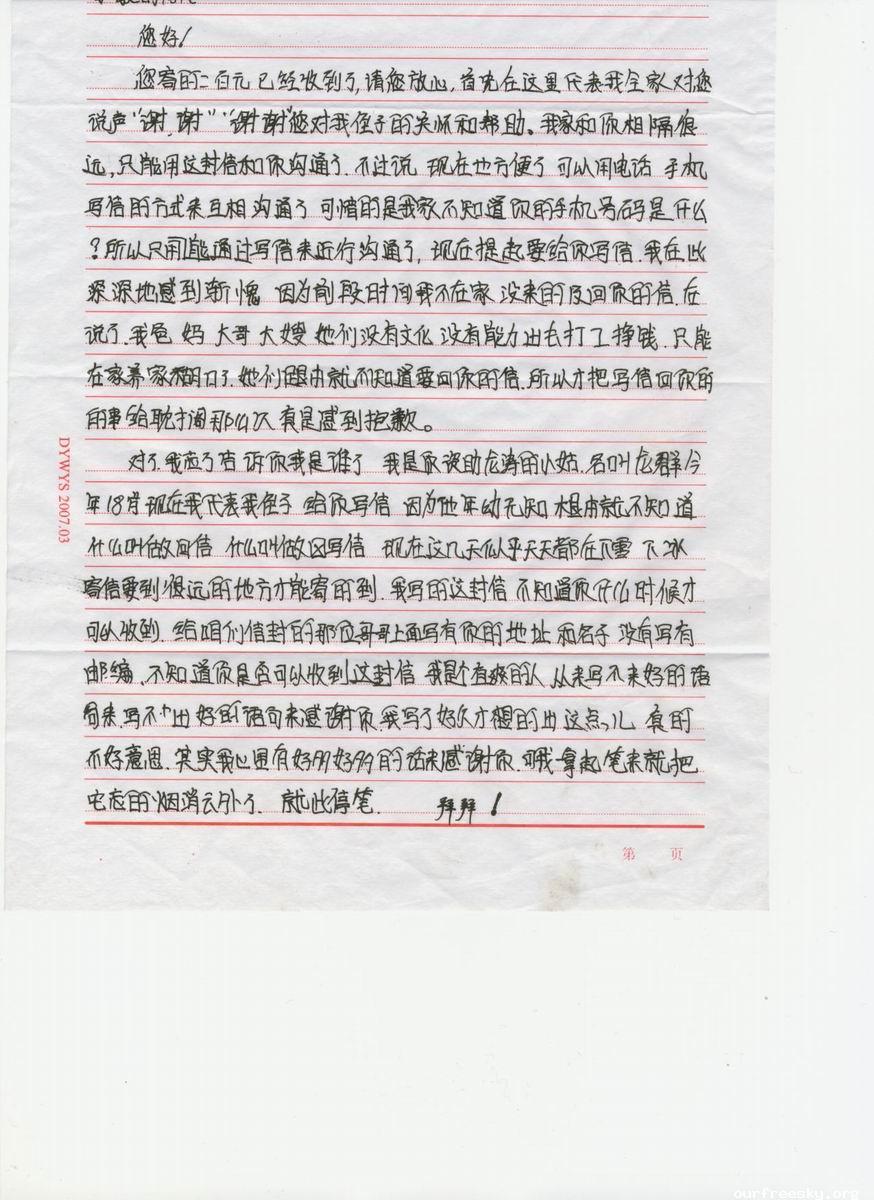 您好!
您寄的二百元 已经收到了,请您放心,首先在这里代表我全家对您
说声"谢,谢" "谢谢"您对我侄子的关怀和帮助。我家和你相隔很
远,只能用这封信和你沟通了.不过说 现在地方便了 可以用电话 手机
写信的方式来互相沟通了 可惜的是我家不知道你的手机号码是什么
?所以只能通过写信来近行沟通了,现在提起要给你写信.我在此
深深地感到斩愧 因为前段时间我不在家 没来的及回你的信.在
说了.我爸 妈 大哥 大嫂 她们没有文化 没有能力出去打工挣钱.只能
在家养家糊口了.她们跟本就不知道要回你的信.所以才把写信回你的
的事给耽搁那么久 真是感到抱歉。
对了.我忘了告诉你我是谁了 我是你资助龙涛的小姑.名叫龙群今
年18岁 现在我代表我侄子 给你写信 因为他年幼无知 根本就不知道
什么叫做回信 什么叫做写信 现在这几天似乎天天都在下雪 下冰
寄信要到很远的地方才能寄的到.我写的这封信 不知道你什么时候才
可以收到.给咱们信封的那位哥哥上面写有你的地址 和名子 没有写有
邮编.不知道你是否可以收到这封信 我是个直爽的人 从来写不来好的语
句来.写不出好的语句来感谢你.我写了好久才想的出这点儿 真的
不好意思.其实我心里有好多好多的话来感谢你.可我一拿起笔来就把
它忘的烟消云外了. 就此停笔. 拜拜!
DYWYS 2007.03
第 页
ourfreesky.org